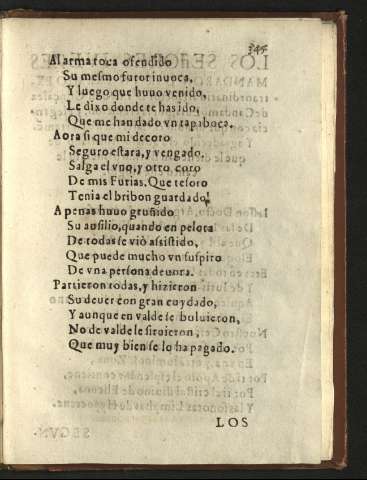 345
Al arma toca ofendido
Su mesmo furor inuoca,
Y luego que huuo venido,
Le dixo donde te has ido,
Que me han dado vn tapaboca.
Aora si que mi decoro
Seguro estara, y vengado.
Salga el vno, y otro coro
De mis Furias. Que tesoro
Tenia el bribon guardado!
Apenas huuo gruñido
Su ausilio, quando en pelota
De todas se viò assistido,
Que puede mucho vn suspiro
De vna persona deuota.
Partieron todas, y hizieron
Su deuer con gran cuydado,
Y aunque en valde se boluieron,
No de valde le siruieron,
Que muy bien se lo ha pagado.
LOS